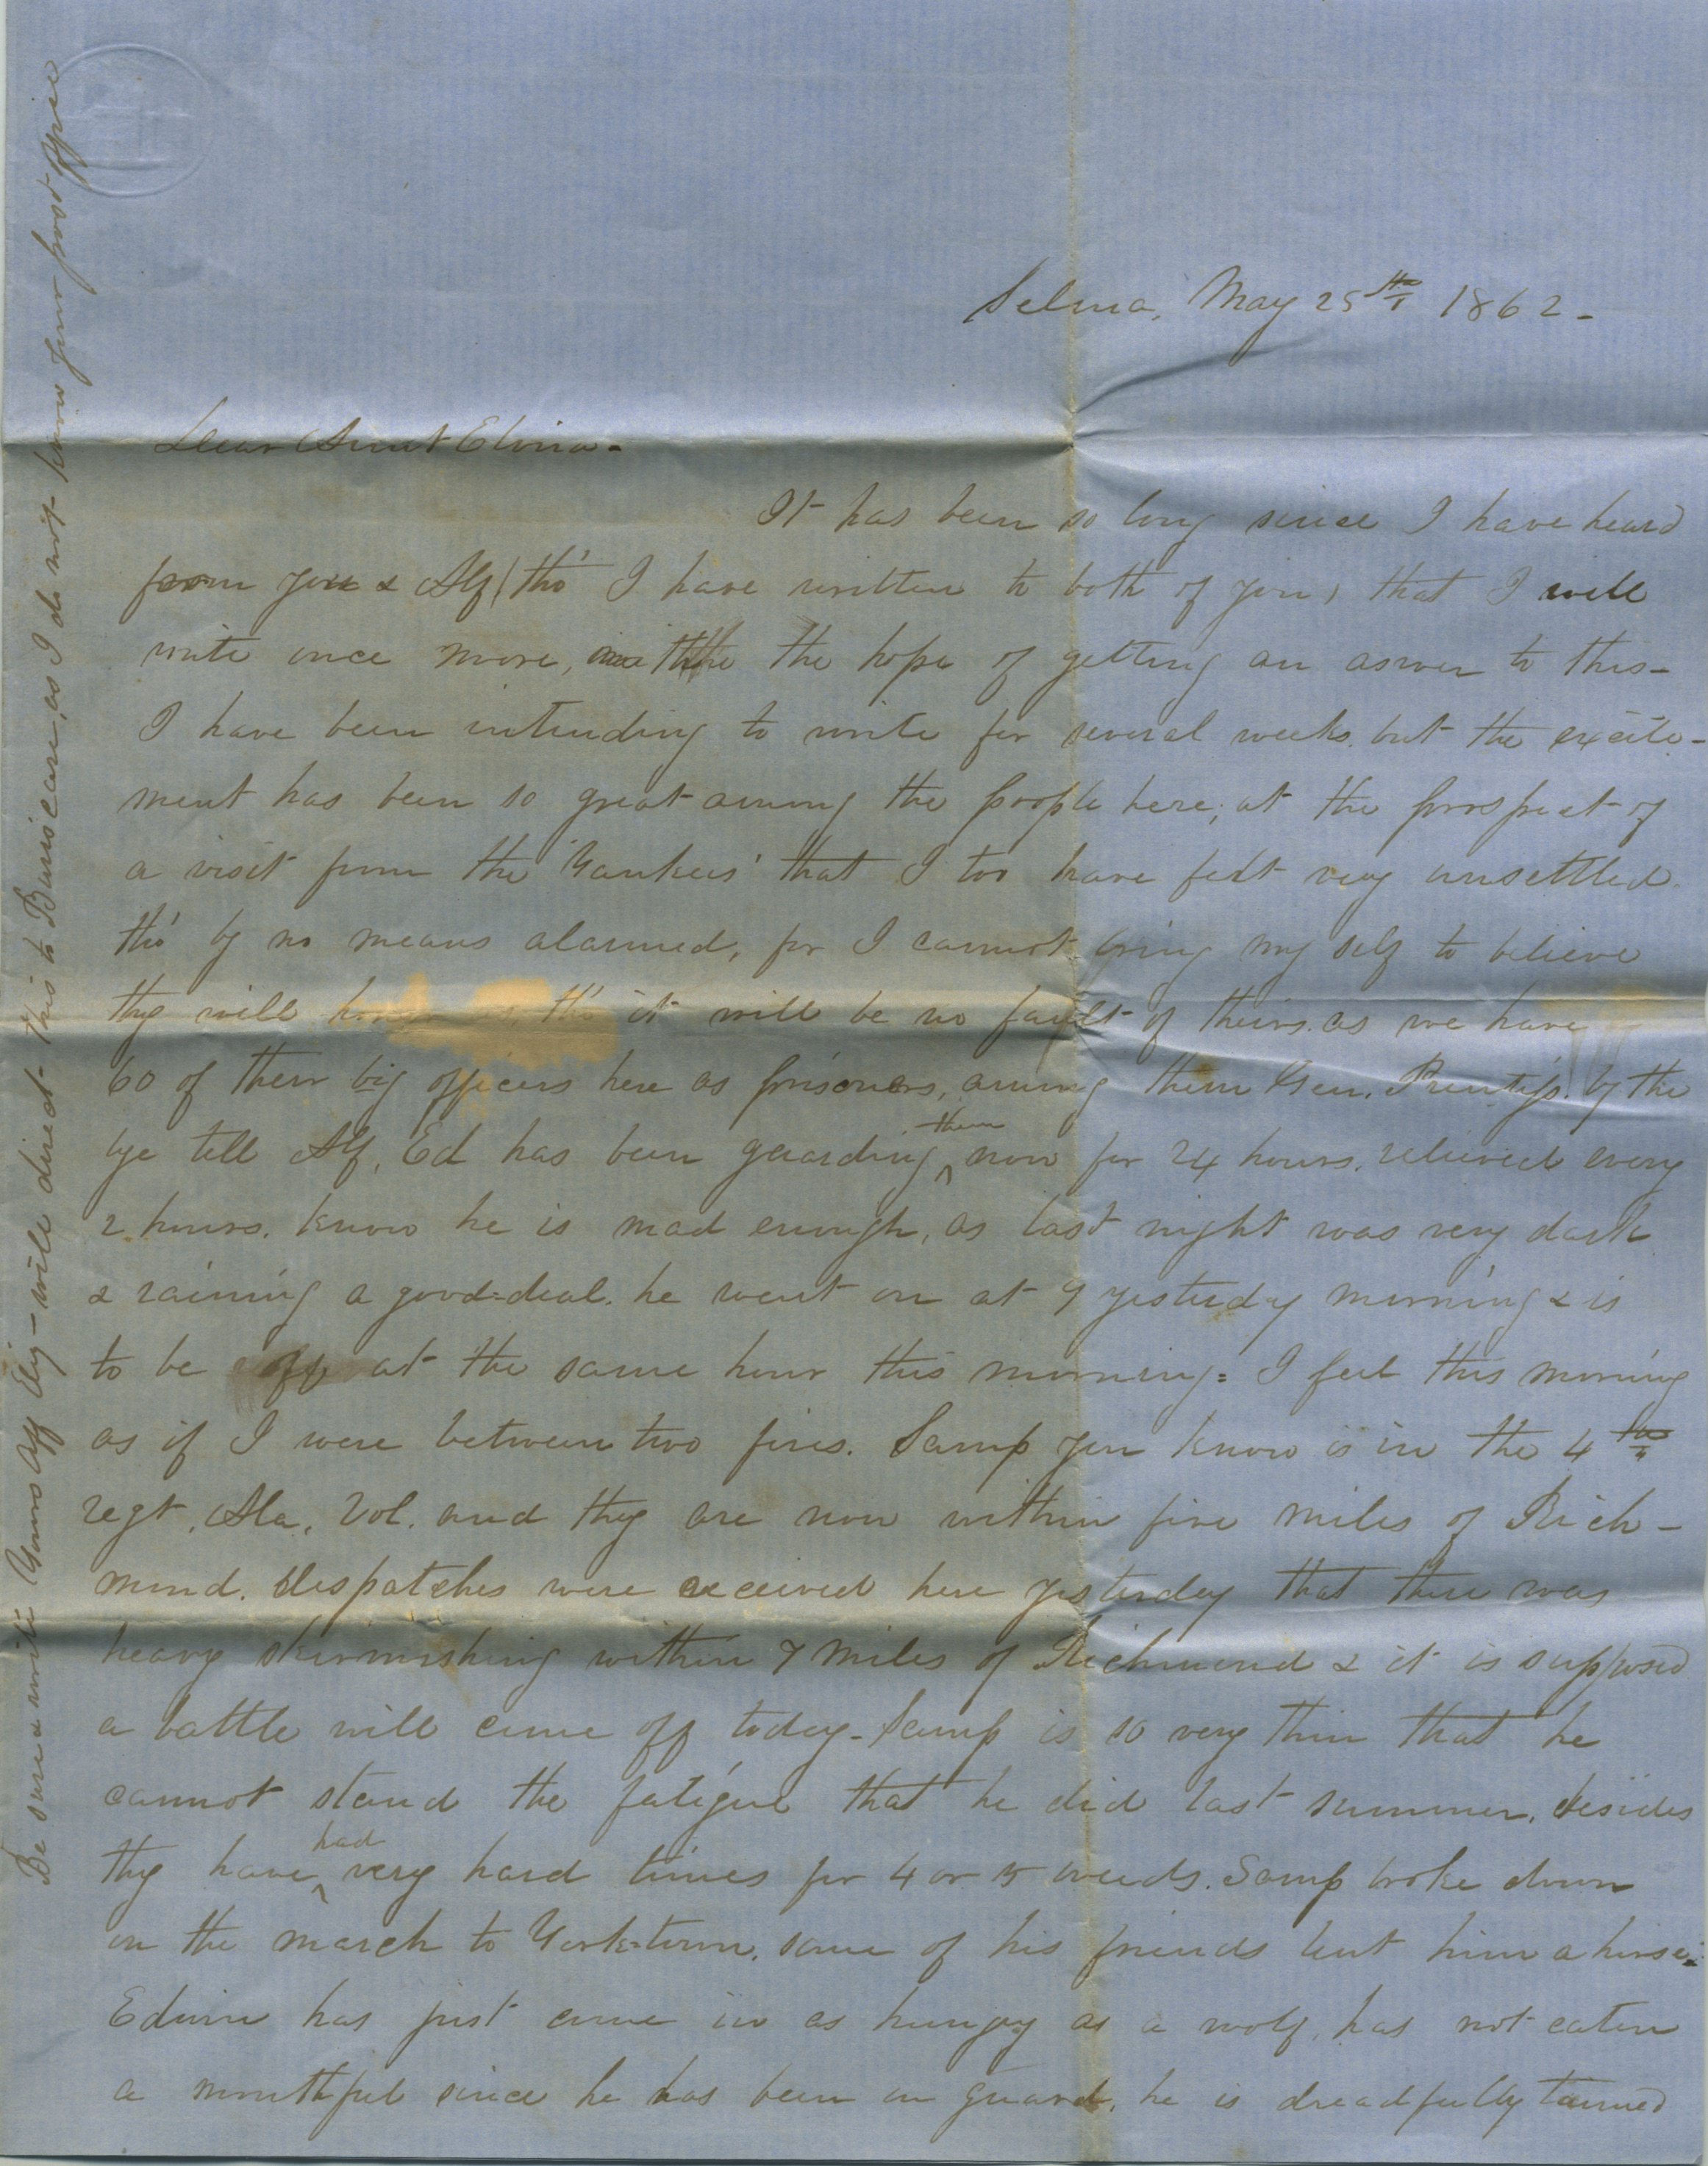 Selma, May 25th 1862-
Dear Aunt Elvira-
It has been so long since I have heard
from you & Alf (tho' I have written to both of you) that I will
write once more, with the hope of getting an aswer to this-
I have been intending to write for several weeks. but the excite-
ment has been so great among the people here, at the prospect of
a visit from the 'Yankees' that I too have felt very unsettled.
tho' by no means alarmed, for I cannot bring my self to believe
they will tho' it will be no fault of theirs. as we have
60 of their big officers here as prisoners, among them Gen. Prentiss. by the
bye tell Alf, Ed has been guarding them now for 24 hours. relieved every
2 hours. know he is mad enough, as last night was very dark
& raining a good=deal. he went on at 9 yesterday morning & is
to be off at the same hour this morning= I feel this morning
as if I were between two fires. Samp you know is in the 4th
regt. Ala. Vol. and they are now within five miles of Rich-
mond. despatches were received here yesterday that there was
heavy skirmishing within 7 miles of Richmond & it is supposed
a battle will come off today- Samp is so very thin that he
cannot stand the fatigue that he did last summer. besides
they have had very hard times for 4 or 5 weeks. Samp broke down
on the march to York-town. some of his friends lent him a horse.
Edwin has just come in as hungry as a wolf, has not eaten
a mouthful since he has been on guard. he is dreadfully tanned
Be sure & write Yours aff Liz- will direct this to as I do not know your post office